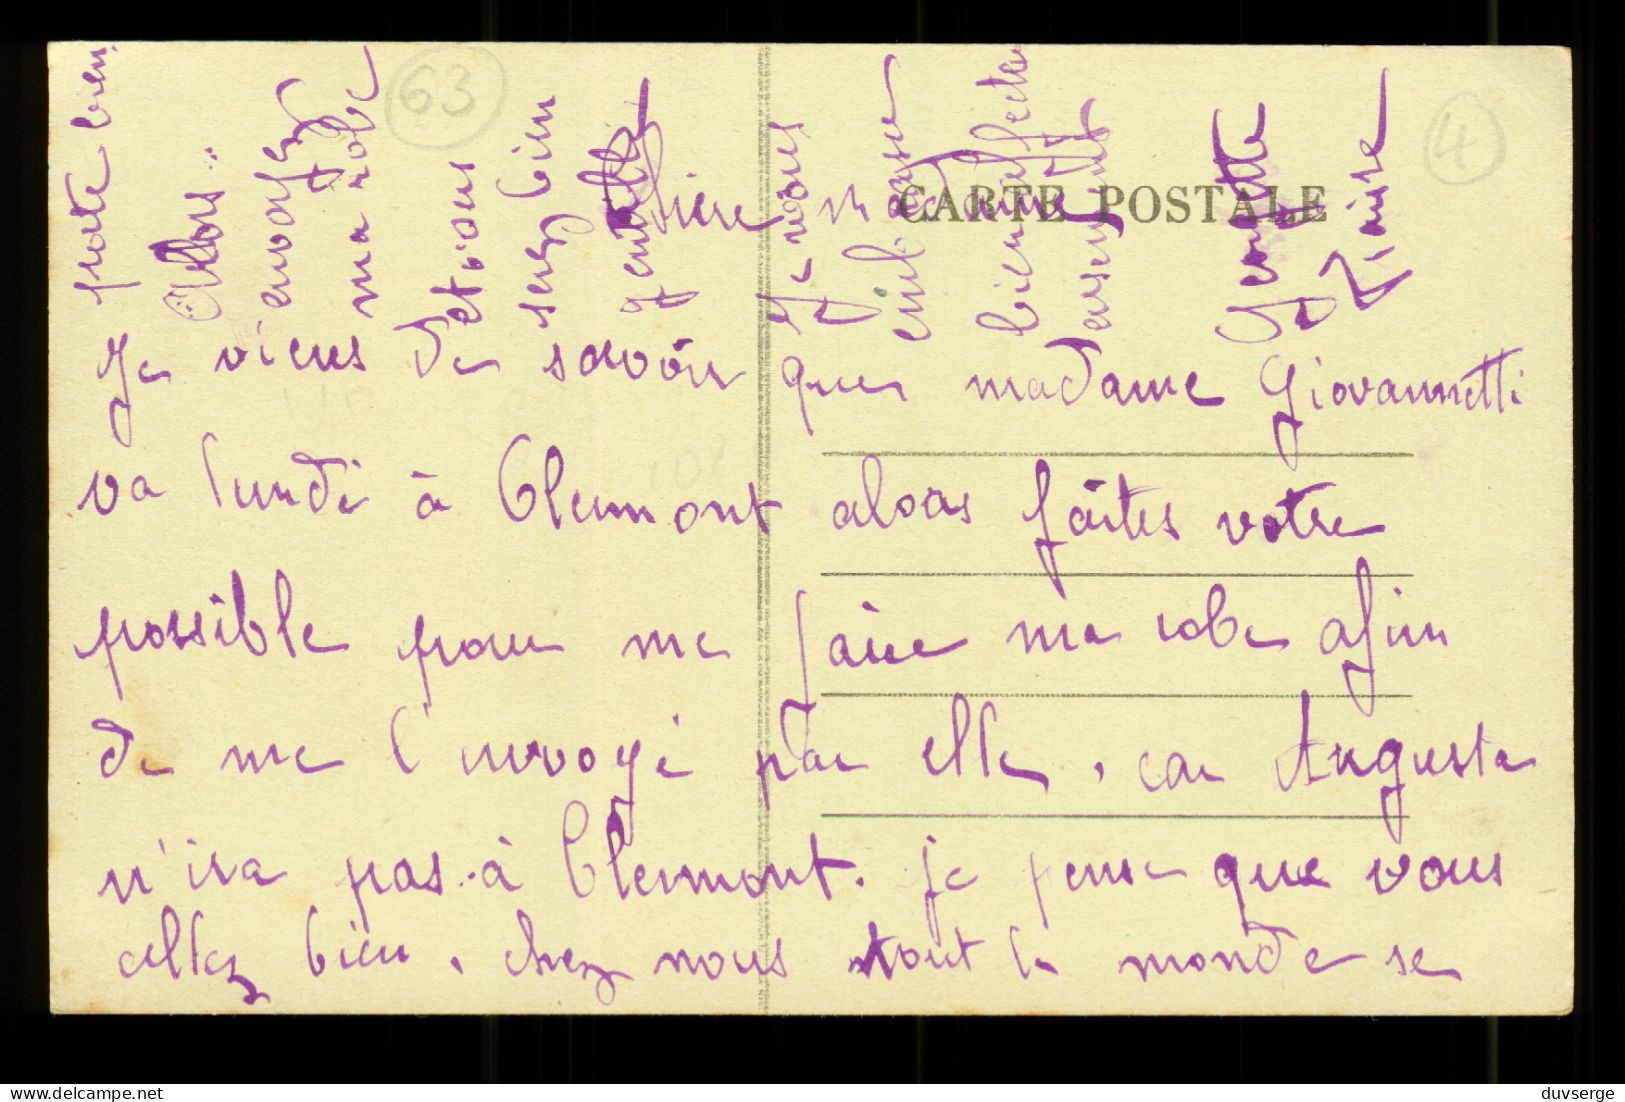 63
4
CARTE POSTALE
Chère madame
Je viens de savoir que madame Giovannetti
va lundi à Clermont alors faites votre
possible pour me faire ma robe afin
de me l'envoyé par elle, car Auguste
n'ira pas à Clermont. je pense que vous
allez bien. chez nous tout le monde se
porte bien.
Alors..
envoyez
ma robe
et vous
serez bien
gentille
Je vous
embrasse
bien affectu
eusement